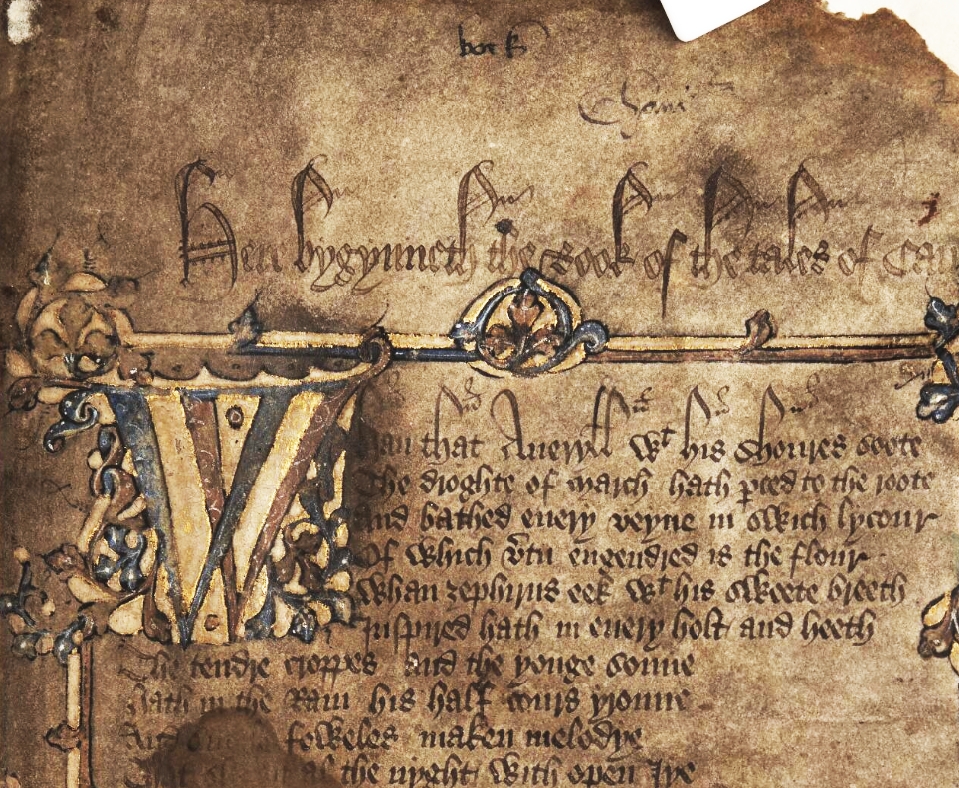 Here bygynneth the Book of the tales of Cau
Whan that Aueryll wt his shoures soote
The droghte of march hath perced to the roote
And bathed euery veyne in swich lycour
Of which vtu engendred is the flour
Whan zephirus eek wt his sweete breeth
Inspired hath in euery holt and heeth
The tendre croppes and the yonge sonne
hath in the Ram his half cours yronne
And foweles maken melodye
al the nyght with open Iye